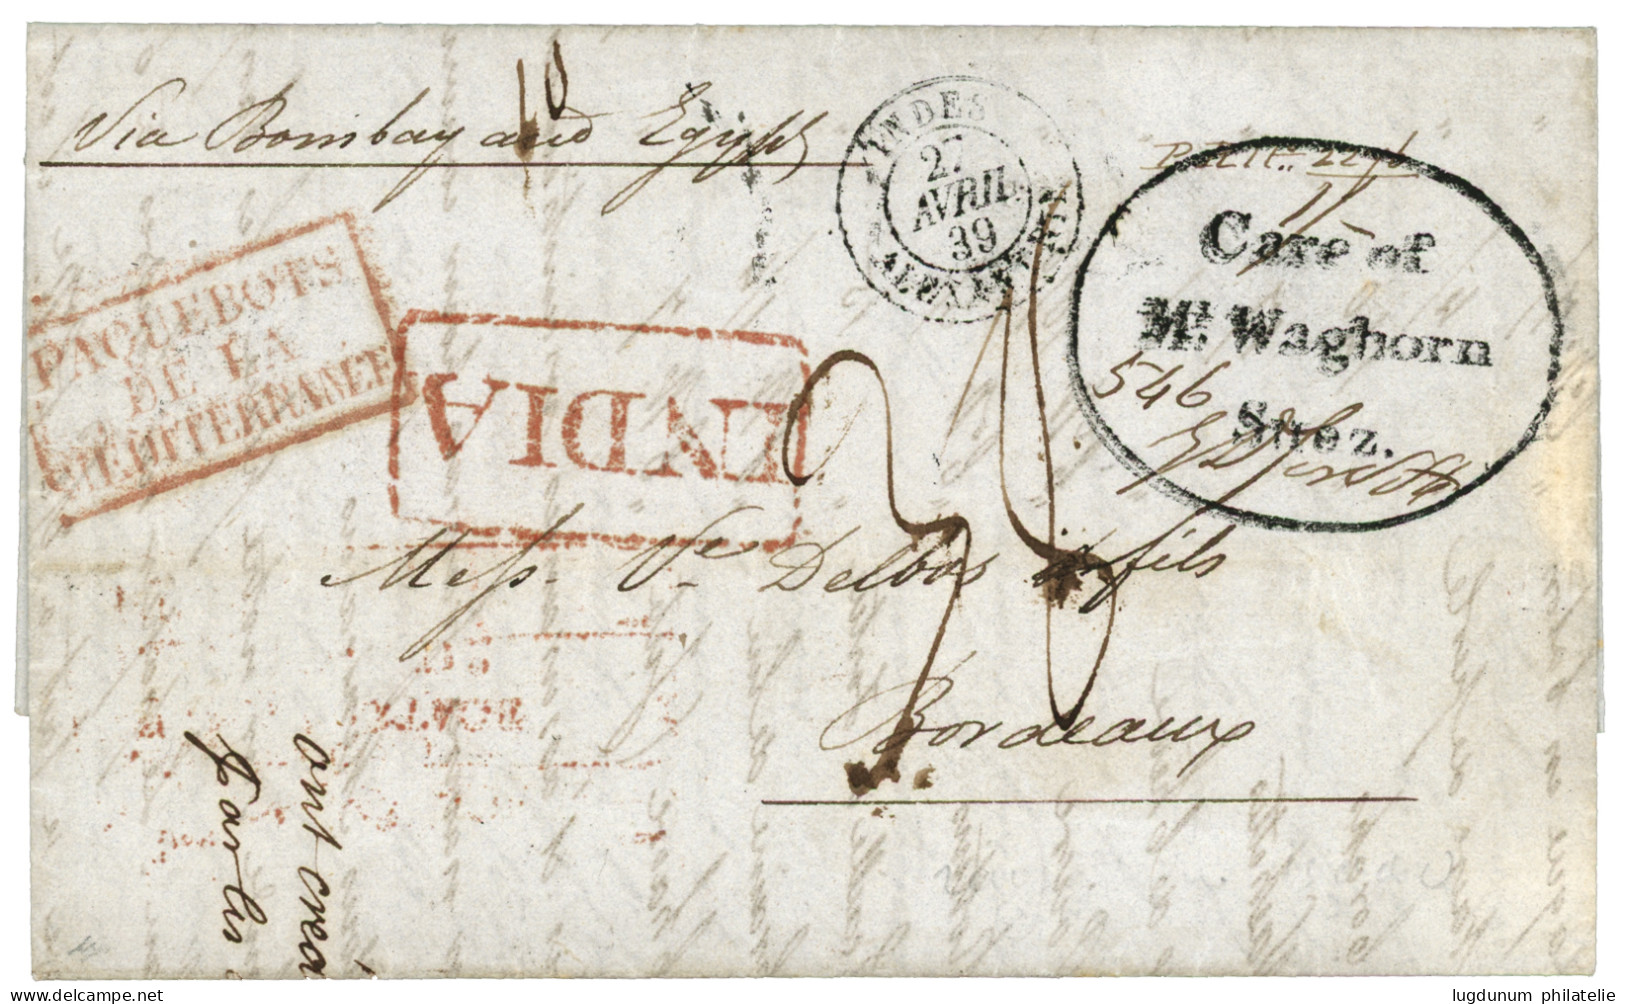 10
Via Bombay and Egypt
INDES
27
AVRIL
39
ALEXANDRIE
Care of
Mr. Waghorn
Suez.
546
PAQUEBOTS
DE LA
MEDITERRANEE
INDIA
Mess. Ve Delbos & fils
Bordeaux
ont créd
par les
delcampe.net
lugdunum philatelie